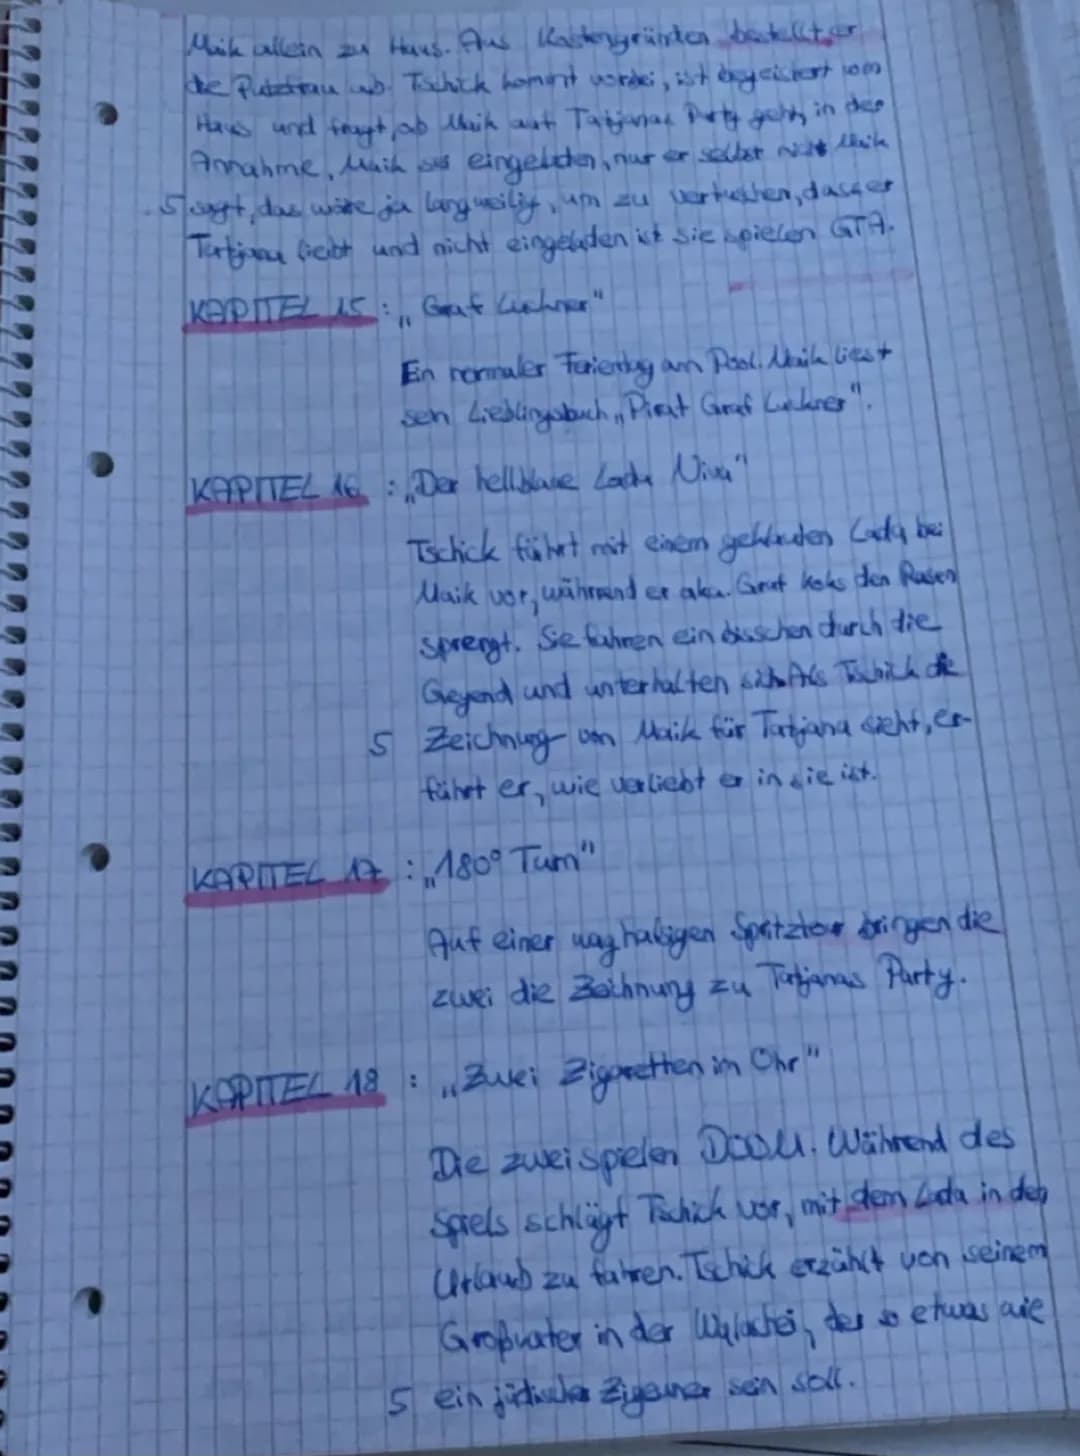 Maik allein zu Haus. Aus Kostengründen bestellt er
die Putzfrau ab. Tschick kommt vorbei, ist begeistert vom
Haus und fragt, ob Maik auf Tatjanas Party geht, in der
Annahme, Maik sei eingeladen, nur er selbst nicht Maik
5 sagt, das wäre ja langweilig, um zu vertuschen, dass er
Tatjana liebt und nicht eingeladen ist Sie spielen GTA.
KAPITEL 15 : „Graf Luckner"
Ein normaler Ferientag am Pool. Maik liest
sein Lieblingsbuch „Pirat Graf Luckner".
KAPITEL 16 : „Der hellblaue Lada Niva"
Tschick fährt mit einem geklauten Lada bei
Maik vor, während er aka. Graf Koks den Rasen
sprengt. Sie fahren ein bisschen durch die
Gegend und unterhalten sich. Als Tschick die
5 Zeichnung von Maik für Tatjana sieht, er-
fährt er, wie verliebt er in sie ist.
KAPITEL 17 : „180° Turn"
Auf einer waghalsigen Spritztour bringen die
zwei die Zeichnung zu Tatjanas Party.
KAPITEL 18 : „Zwei Zigaretten im Ohr"
Die zwei spielen DOOM. Während des
Spiels schlägt Tschick vor, mit dem Lada in den
Urlaub zu fahren. Tschick erzählt von seinem
Großvater in der Walachei, der so etwas wie
5 ein jüdischer Zigeuner sein soll.